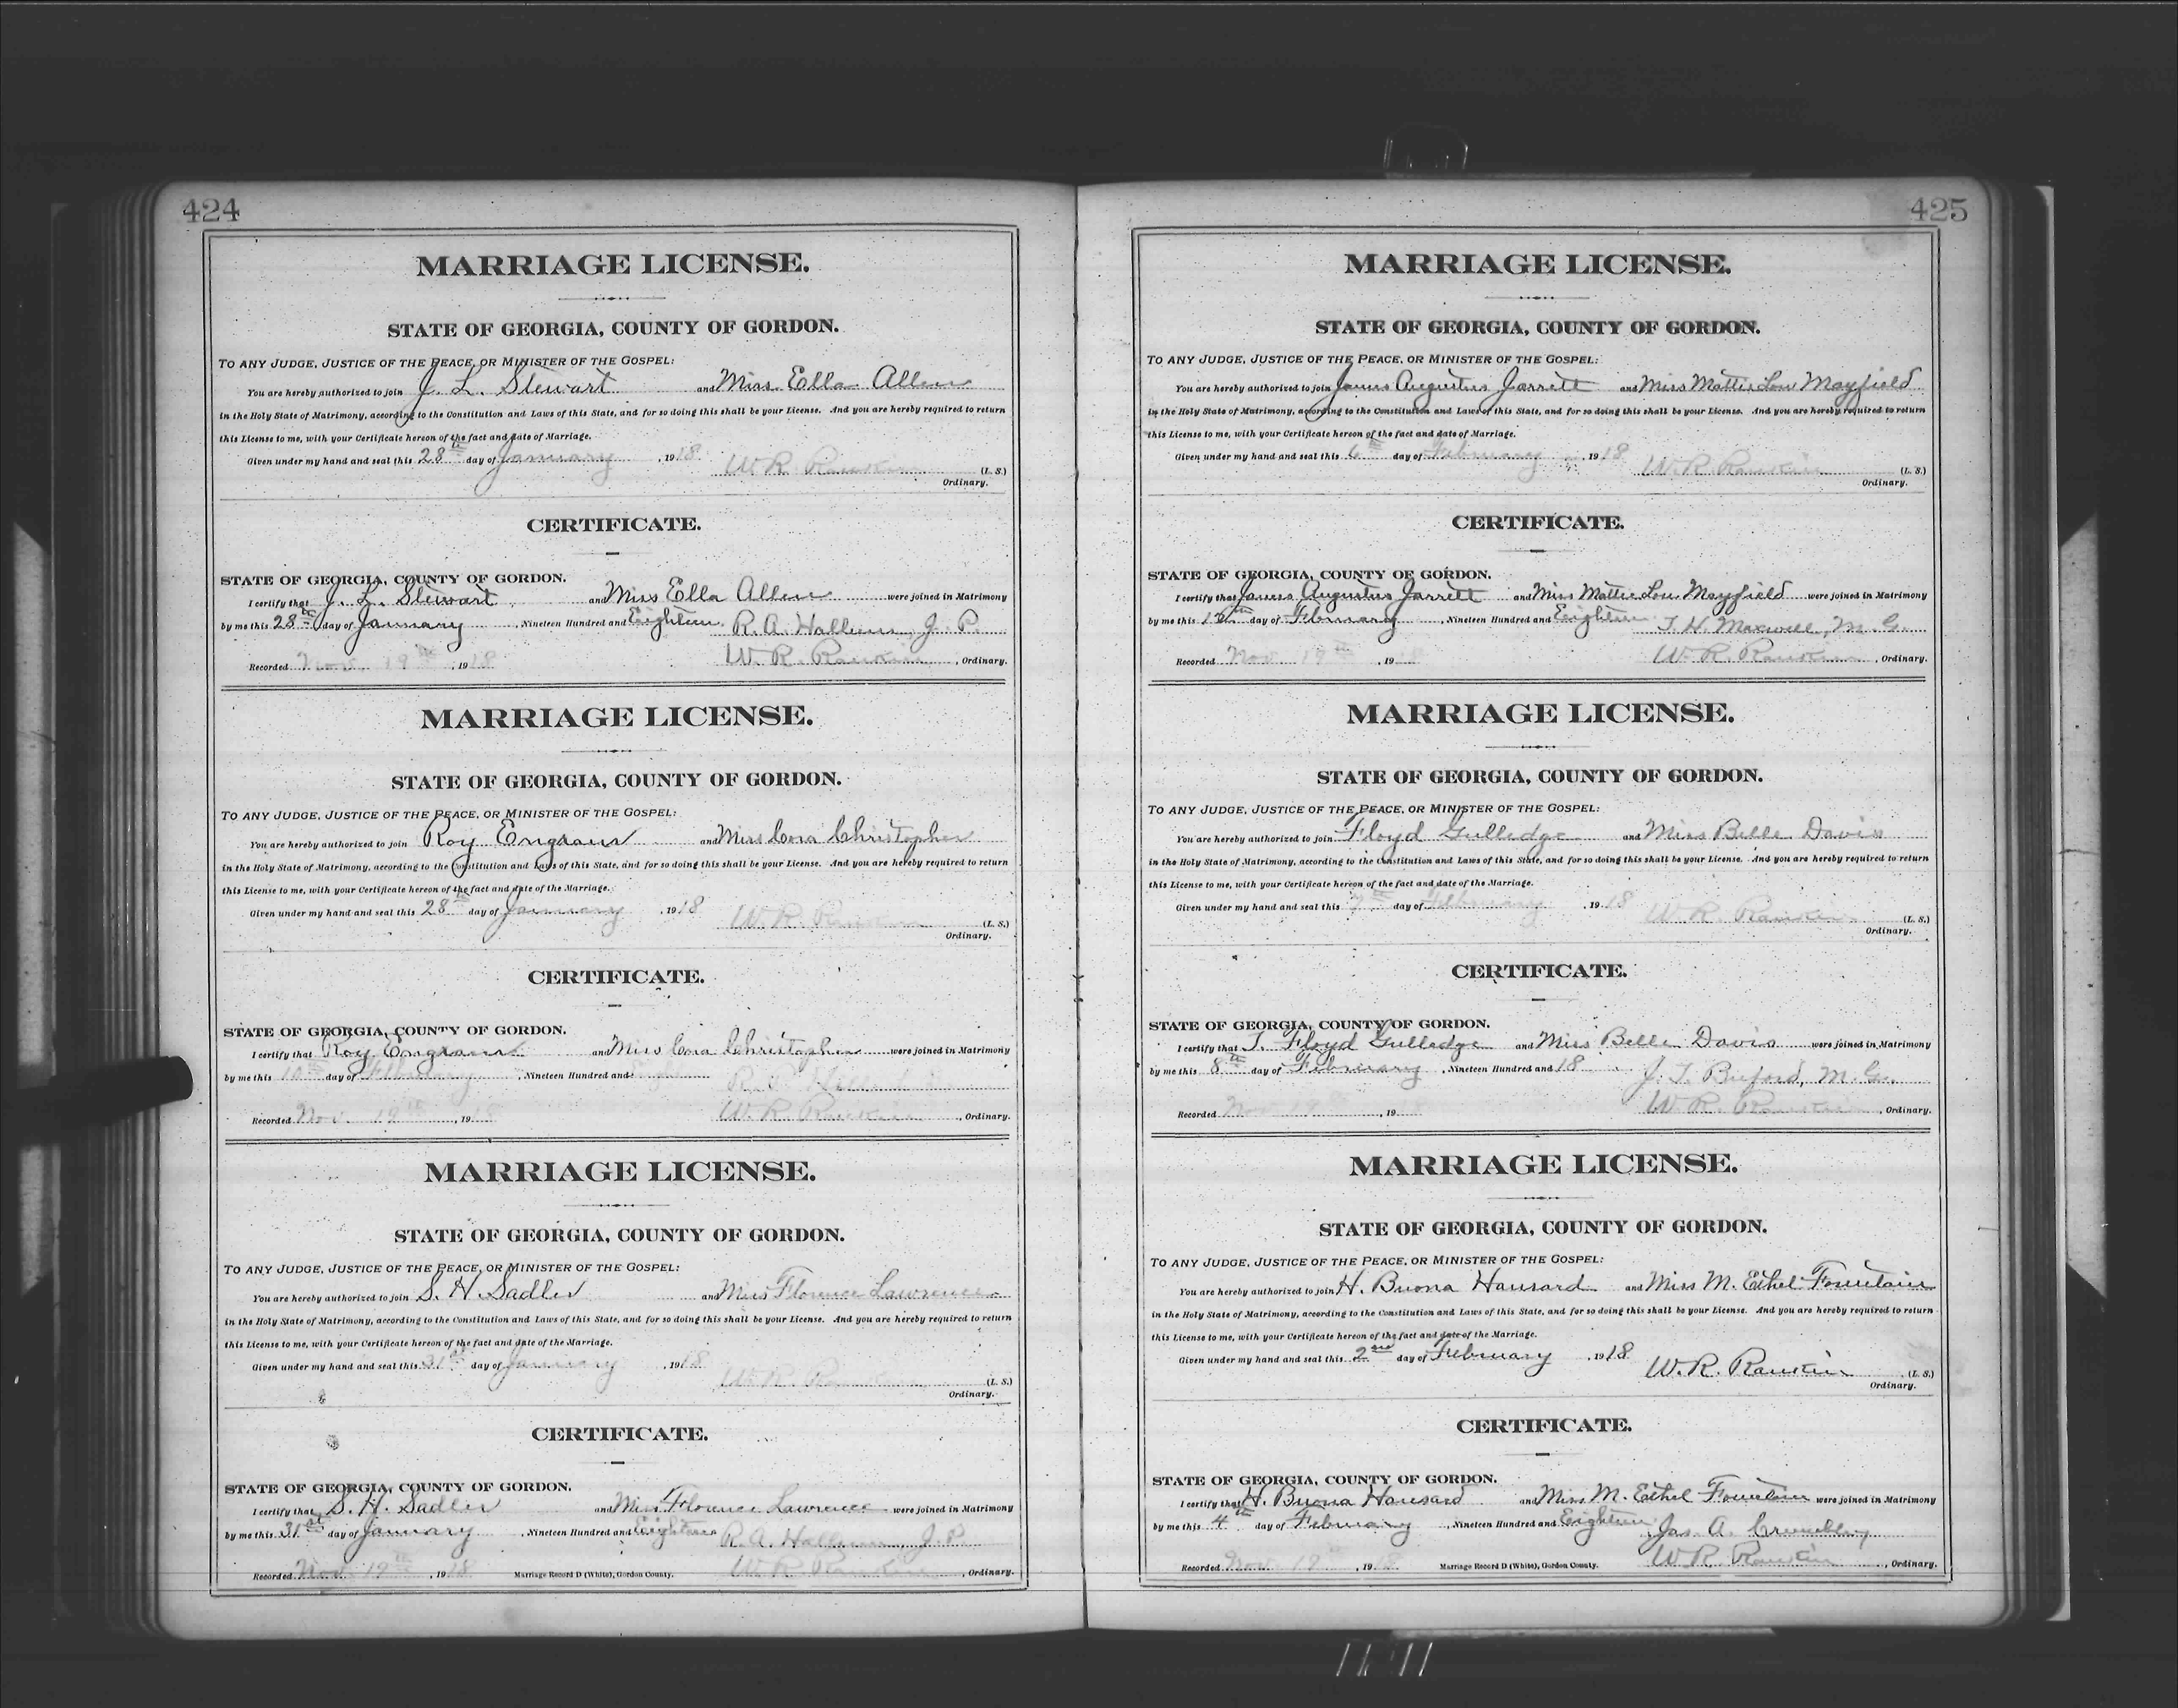 424
MARRIAGE LICENSE.
STATE OF GEORGIA, COUNTY OF GORDON.
TO ANY JUDGE, JUSTICE OF THE PEACE, OR MINISTER OF THE GOSPEL:
You are hereby authorized to join J. L. Stewart and Miss Ella Allen
in the Holy State of Matrimony, according to the Constitution and Laws of this State, and for so doing this shall be your License. And you are hereby required to return
this License to me, with your Certificate hereon of the fact and date of Marriage.
Given under my hand and seal this 28th day of January, 1918 W. R. Rankin (L. S.)
Ordinary.
CERTIFICATE.
STATE OF GEORGIA, COUNTY OF GORDON.
I certify that J. L. Stewart and Miss Ella Allen were joined in Matrimony
by me this 28th day of January, Nineteen Hundred and Eighteen R. A. J. P.
Recorded Nov. 19th, 1918 W. R. Rankin, Ordinary.
MARRIAGE LICENSE.
STATE OF GEORGIA, COUNTY OF GORDON.
TO ANY JUDGE, JUSTICE OF THE PEACE, OR MINISTER OF THE GOSPEL:
You are hereby authorized to join Roy and Miss Cora Christopher
in the Holy State of Matrimony, according to the Constitution and Laws of this State, and for so doing this shall be your License. And you are hereby required to return
this License to me, with your Certificate hereon of the fact and date of the Marriage.
Given under my hand and seal this 28th day of January, 1918 W. R. Rankin (L. S.)
Ordinary.
CERTIFICATE.
STATE OF GEORGIA, COUNTY OF GORDON.
I certify that Roy and Miss Cora Christopher were joined in Matrimony
by me this 10th day of February, Nineteen Hundred and
Recorded Nov. 19th, 1918 W. R. Rankin, Ordinary.
MARRIAGE LICENSE.
STATE OF GEORGIA, COUNTY OF GORDON.
TO ANY JUDGE, JUSTICE OF THE PEACE, OR MINISTER OF THE GOSPEL:
You are hereby authorized to join S. H. Sadler and Miss Florence Lawrence
in the Holy State of Matrimony, according to the Constitution and Laws of this State, and for so doing this shall be your License. And you are hereby required to return
this License to me, with your Certificate hereon of the fact and date of the Marriage.
Given under my hand and seal this 31st day of January, 1918 W. R. Rankin (L. S.)
Ordinary.
CERTIFICATE.
STATE OF GEORGIA, COUNTY OF GORDON.
I certify that S. H. Sadler and Miss Florence Lawrence were joined in Matrimony
by me this 31st day of January, Nineteen Hundred and Eighteen R. A. J. P.
Recorded Nov. 19th, 1918 Marriage Record D (White), Gordon County. W. R. Rankin, Ordinary.
425
MARRIAGE LICENSE.
STATE OF GEORGIA, COUNTY OF GORDON.
TO ANY JUDGE, JUSTICE OF THE PEACE, OR MINISTER OF THE GOSPEL:
You are hereby authorized to join James Augustus Jarrett and Miss Mattie Lou Mayfield
in the Holy State of Matrimony, according to the Constitution and Laws of this State, and for so doing this shall be your License. And you are hereby required to return
this License to me, with your Certificate hereon of the fact and date of Marriage.
Given under my hand and seal this 6th day of February, 1918 W. R. Rankin (L. S.)
Ordinary.
CERTIFICATE.
STATE OF GEORGIA, COUNTY OF GORDON.
I certify that James Augustus Jarrett and Miss Mattie Lou Mayfield were joined in Matrimony
by me this day of February, Nineteen Hundred and Eighteen T. H. Maxwell, M. G.
Recorded Nov. 19th, 19 W. R. Rankin, Ordinary.
MARRIAGE LICENSE.
STATE OF GEORGIA, COUNTY OF GORDON.
TO ANY JUDGE, JUSTICE OF THE PEACE, OR MINISTER OF THE GOSPEL:
You are hereby authorized to join Floyd Gulledge and Miss Belle Davis
in the Holy State of Matrimony, according to the Constitution and Laws of this State, and for so doing this shall be your License. And you are hereby required to return
this License to me, with your Certificate hereon of the fact and date of the Marriage.
Given under my hand and seal this 7th day of February, 1918 W. R. Rankin (L. S.)
Ordinary.
CERTIFICATE.
STATE OF GEORGIA, COUNTY OF GORDON.
I certify that T. Floyd Gulledge and Miss Belle Davis were joined in Matrimony
by me this 8th day of February, Nineteen Hundred and 18 J. T. Buford, M. G.
Recorded Nov. 19th, 1918 W. R. Rankin, Ordinary.
MARRIAGE LICENSE.
STATE OF GEORGIA, COUNTY OF GORDON.
TO ANY JUDGE, JUSTICE OF THE PEACE, OR MINISTER OF THE GOSPEL:
You are hereby authorized to join H. Buona Hansard and Miss M. Ethel Fountain
in the Holy State of Matrimony, according to the Constitution and Laws of this State, and for so doing this shall be your License. And you are hereby required to return
this License to me, with your Certificate hereon of the fact and date of the Marriage.
Given under my hand and seal this 2nd day of February, 1918 W. R. Rankin (L. S.)
Ordinary.
CERTIFICATE.
STATE OF GEORGIA, COUNTY OF GORDON.
I certify that H. Buona Hansard and Miss M. Ethel Fountain were joined in Matrimony
by me this 4th day of February, Nineteen Hundred and Eighteen Jas. A. Crumbley
Recorded Nov. 19th, 1918 Marriage Record D (White), Gordon County. W. R. Rankin, Ordinary.